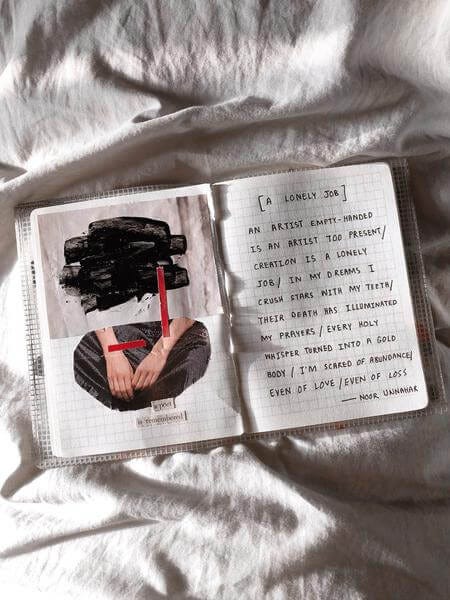 a poet
is remembered
[A LONELY JOB]
AN ARTIST EMPTY-HANDED
IS AN ARTIST TOO PRESENT/
CREATION IS A LONELY
JOB/ IN MY DREAMS I
CRUSH STARS WITH MY TEETH/
THEIR DEATH HAS ILLUMINATED
MY PRAYERS/ EVERY HOLY
WHISPER TURNED INTO A GOLD
BODY/ I'M SCARED OF ABUNDANCE/
EVEN OF LOVE/EVEN OF LOSS
— NOOR UNNAHAR